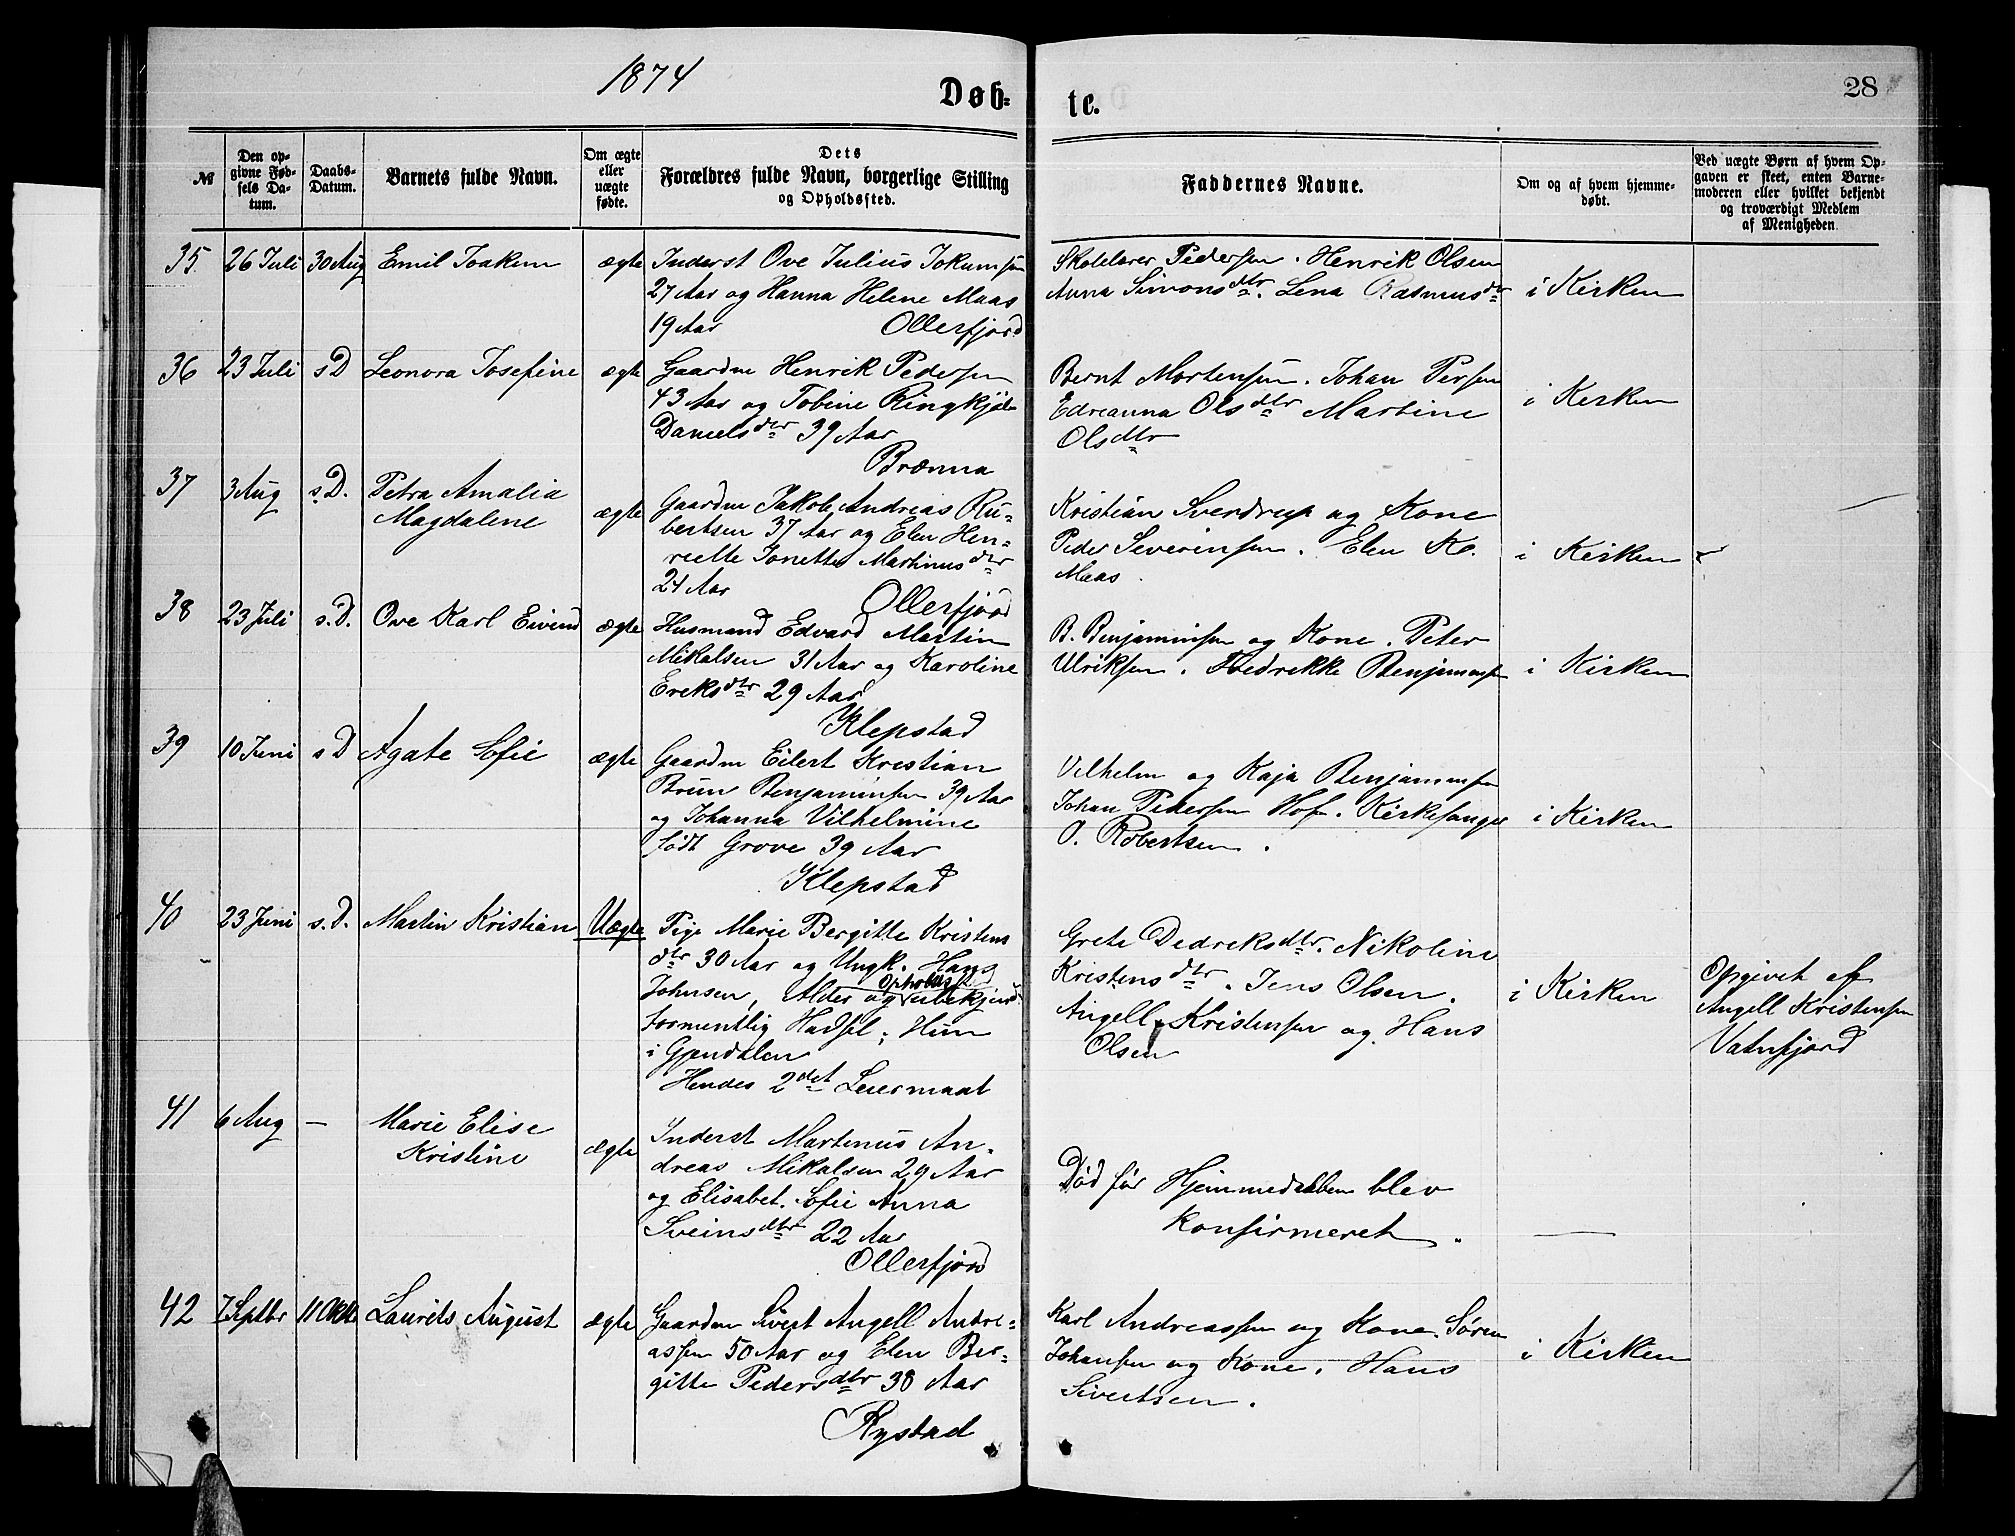 1874
Døb-
te.
28
№
Den op-
givne Fød-
sels Da-
tum.
Daabs-
Datum.
Barnets fulde Navn.
Om ægte
eller
uægte
fødte.
Dets
Forældres fulde Navn, borgerlige Stilling
og Opholdssted.
Faddernes Navne.
Om og af hvem hjemme-
døbt.
Ved uægte Børn af hvem Op-
gaven er skeet, enten Barne-
moderen eller hvilket bekjendt
og troværdigt Medlem
af Menigheden.
35. 26 Juli 30 Aug Emil Joakim ægte
Inderst Ove Julius Jokumsen
27 Aar og Hanna Helene Maas
19 Aar Ollerfjord
Skolelærer Pedersen. Henrik Olsen
Anna Simonsdtr. Lena Rasmusdtr
i Kirken
36 23 Juli s D Leonora Josefine ægte
Gaardm Henrik Pedersen
43 Aar og Tobine Ringkjøb
Danielsdtr 39 Aar
Brenna
Bernt Mortensen. Johan Persen
Edreanna Olsdtr Martine
Olsdtr
i Kirken
37 3 Aug s.D. Petra Amalia
Magdalene ægte
Gaardm Jakob Andreas Ru-
bertsen 37 Aar og Elen Hen-
riette Jonette Martinusdtr
24 Aar Ollerfjord
Kristian Sverdrup og Kone
Peder Severinsen. Elen K.
Maas.
i Kirken
38 23 Juli s.D. Ove Karl Eivind ægte
Husmand Edvard Martin
Mikalsen 31 Aar og Karoline
Ereksdtr 29 Aar
Klepstad
B. Benjaminsen og Kone. Peter
Ulriksen. Fredrekke Benjaminsen
i Kirken
39 10 Juni s D Agate Sofie ægte
Gaardm Eilert Kristian
Bruun Benjaminsen 39 Aar
og Johanna Vilhelmine
født Grove 39 Aar
Klepstad
Vilhelm og Kaja Benjaminsen
Johan Pedersen Hof. Kirkesanger
O. Robertsen.
i Kirken
40 23 Juni s.D. Martin Kristian Uægte
Pige Marie Bergitte Kristens
dtr 30 Aar og Ungk. Hans
Johnsen, Alder og Opholdsst ubekjend
formentlig Hadsel; Hun
i Gjendalen
Hendes 2det Leiermaal
Grete Dedreksdtr. Nikoline
Kristensdtr. Jens Olsen.
Angell Kristensen og Hans
Olsen
i Kirken
Opgivet af
Angell Kristensen
Vatnfjord
41 6 Aug — Marie Elise
Kristine ægte
Inderst Martinus An-
dreas Mikalsen 29 Aar
og Elisabet Sofie Anna
Sveinsdtr 22 Aar
Ollerfjord
Død før Hjemmedaaben blev
konfirmeret.
—
42 7 Septbr 11 Oktb Laurits August ægte
Gaardm Sivert Angell Andre-
assen 50 Aar og Elen Ber-
gitte Pedersdtr 38 Aar
Rystad
Karl Andreassen og Kone. Søren
Johansen og Kone. Hans
Sivertsen.
i Kirken